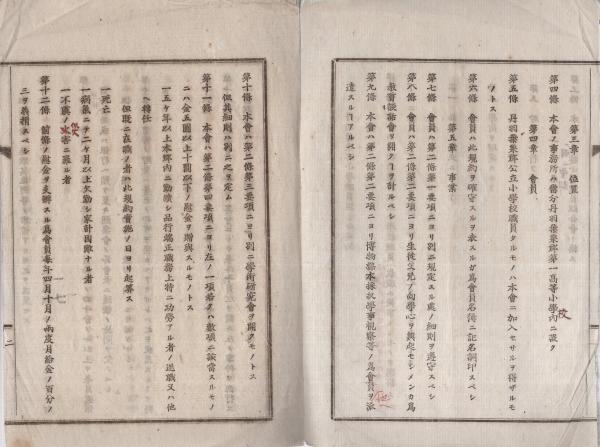 第三章 位置
第四條 本會ノ事務所ハ當分丹羽葉栗郡第一高等小學校內ニ設ク
第四章 會員
第五條 丹羽葉栗郡公立小學校職員タルモノハ本會ニ加入セサルヲ得ザルモノトス
第六條 會員ハ此規約ヲ確守スルヲ表スルガ爲會員名簿ニ記名調印スベシ
第五章 事業
第七條 會員ハ第二條第一要項ニヨリ別ニ規定スル處ノ細則ヲ遵守スベシ
第八條 會員ハ第二條第二要項ニヨリ生徒父兄ノ向學心ヲ興起セシメンカ爲
教育談話會ヲ開クヿヲ計ルベシ
第九條 本會ハ第二條第二要項ニヨリ博物標本採收學事視察等ノ爲會員ヲ派
遣スルヿアルベシ
第十條 本會ハ第二條第三要項ニヨリ別ニ學術硏究會ヲ開クモノトス
但其細則ハ別ニ之ヲ定ム
第十一條 本會ハ第二條第四要項ニヨリ左ノ一項若クハ數項ニ該當スルモノ
ニハ金五圓以上十圓以下ノ慰金ヲ贈與スルモノトス
一五ケ年以上本郡內ニ勤續シ品行端正職務上特ニ功勞アル者ノ退職又ハ他
ヘ轉任
但既ニ在職ノ者ハ此規約實施ノ日ヨリ起算ス
一死亡
一病氣ニテ二ケ月以上欠勤シ家計困難ナル者
一不慮ノ災害ニ罹ル者
第十二條 前條ノ慰金ヲ支辨スル爲會員每年四月十月ノ兩度月給金ノ百分ノ
三ヲ義損スベシ